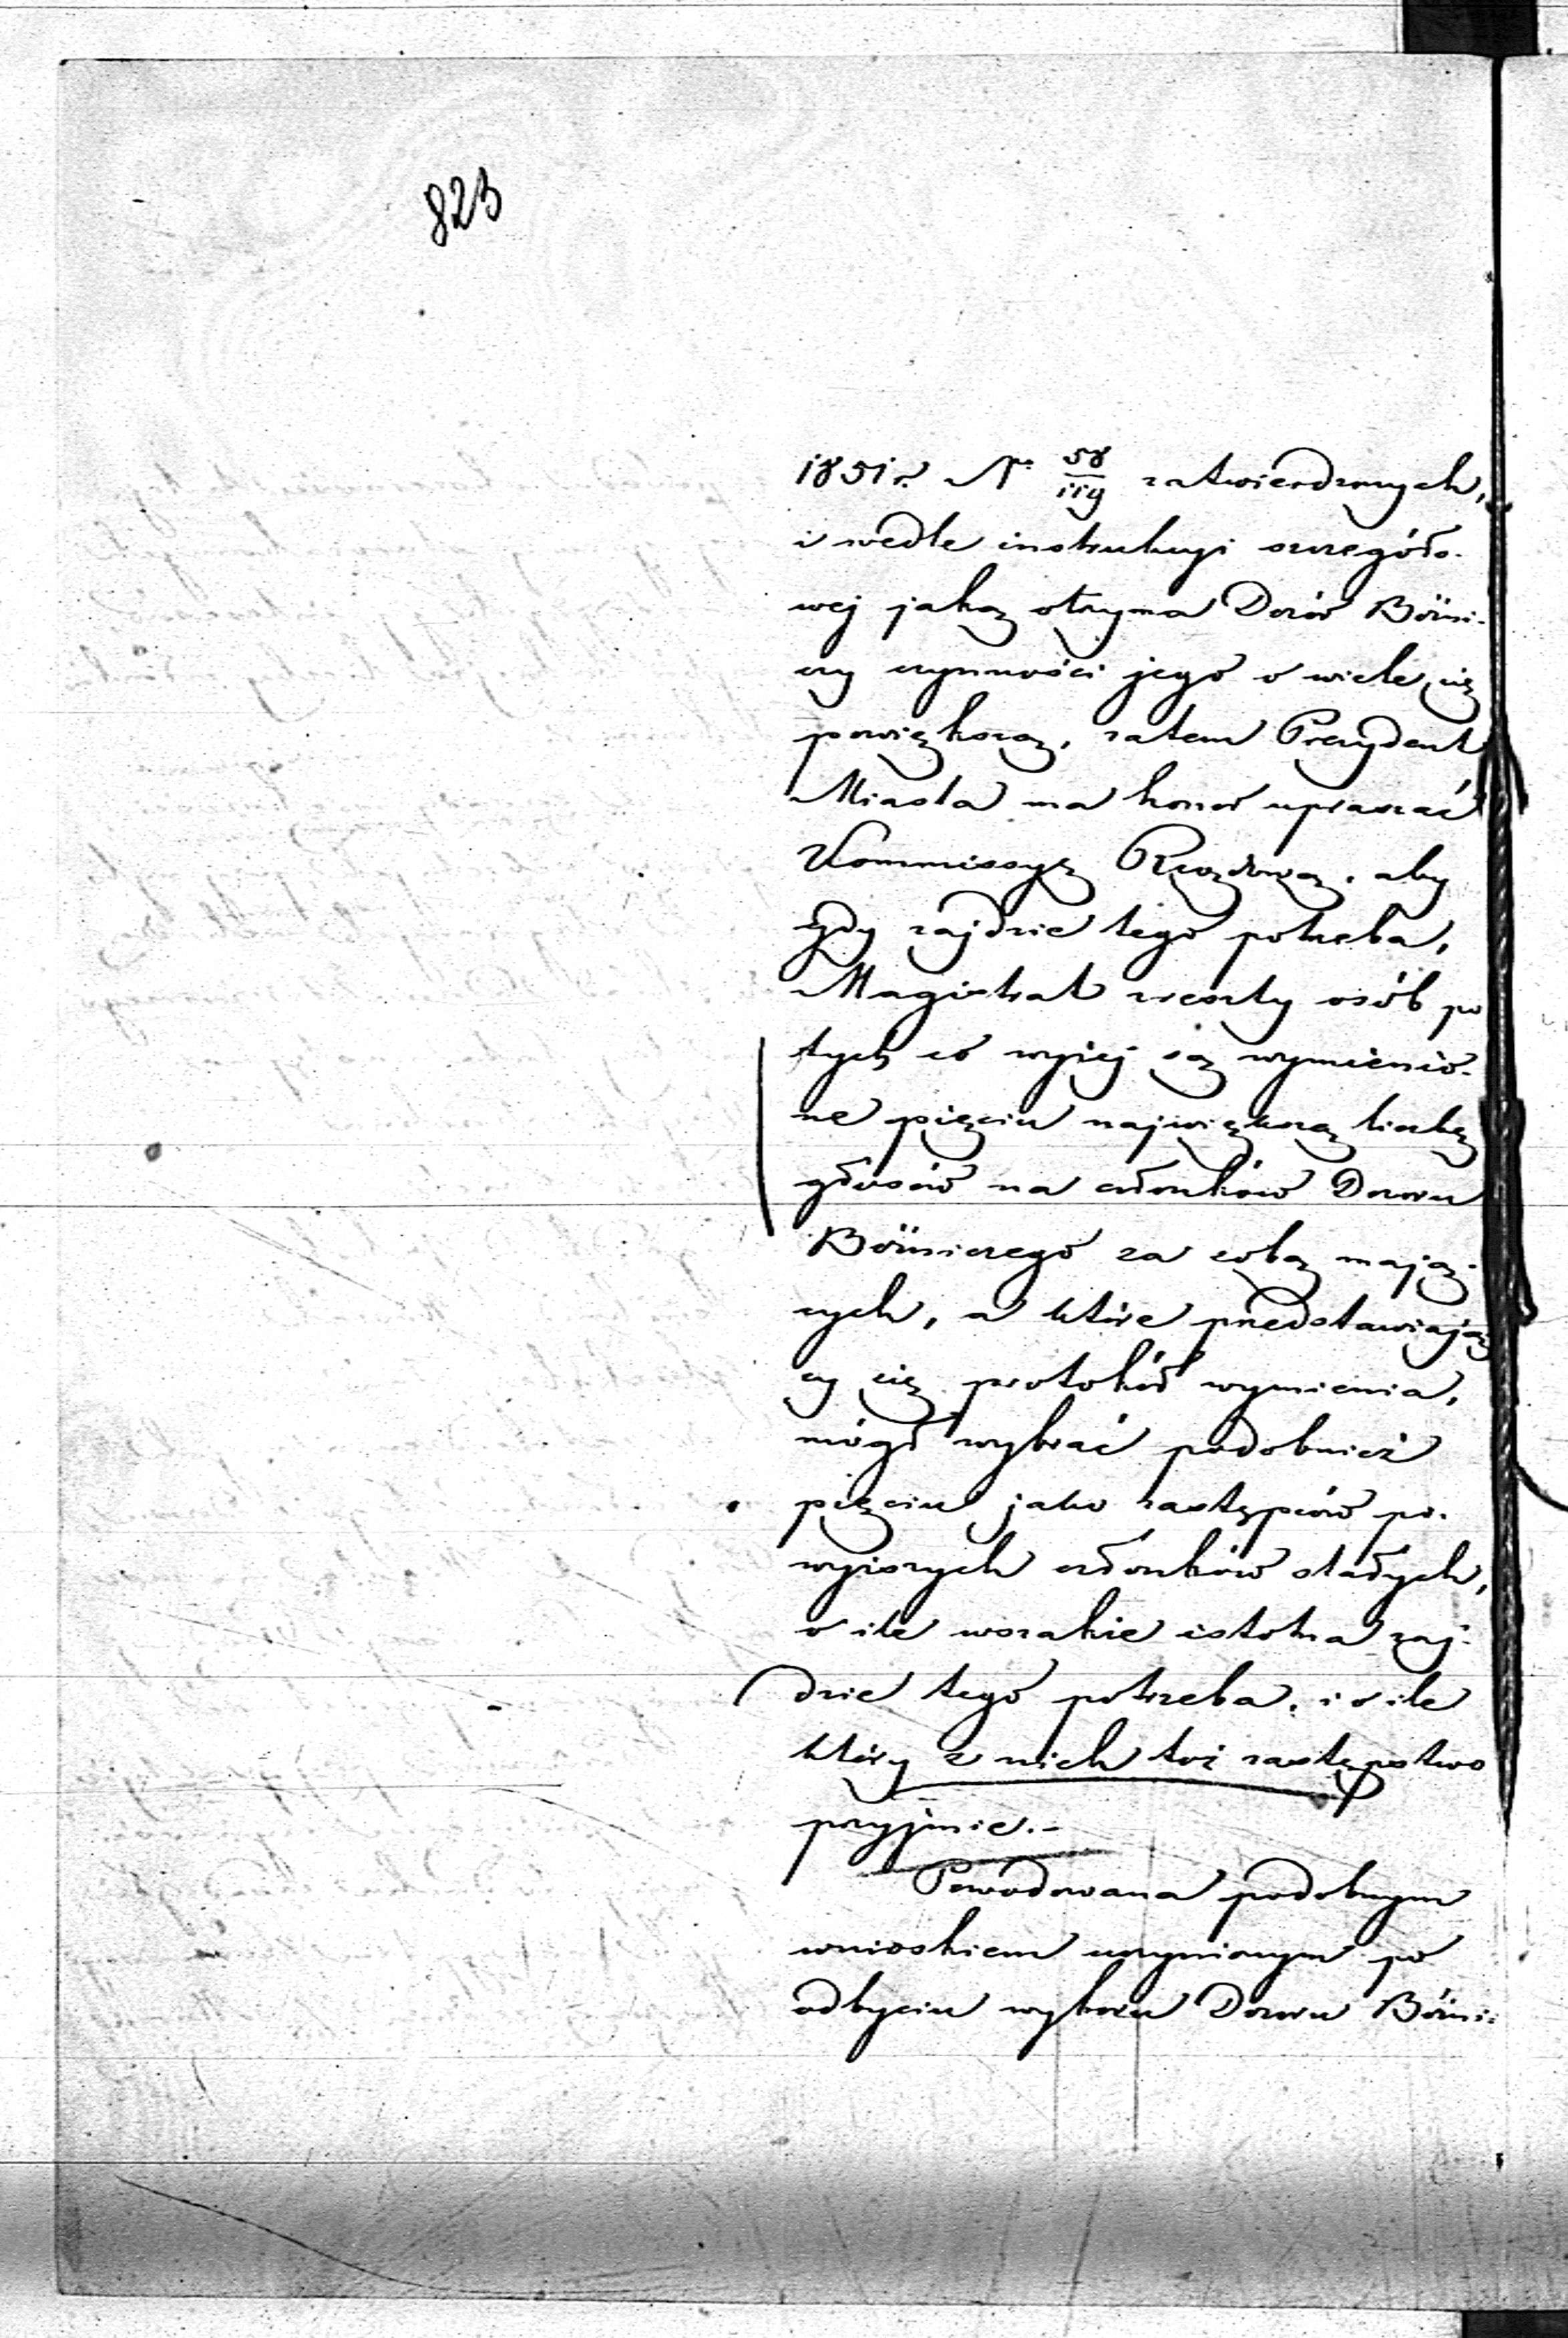 823
1851 r. No 58/119 zatwierdzonych,
i wedle instrukcyi szczegóło-
wej jaką otrzyma Dozór Bóżni-
czy czynności jego o wiele się
powiększą, zatem Prezydent
Miasta ma honor upraszać
Kommissyę Rządową, aby
gdy zajdzie tego potrzeba,
Magistrat z reszty osób po
tych co wyżej są wymienio-
ne pięciu największą liczbę
głosów na członków Dozoru
Bóżniczego za sobą mają-
cych, a które przedstawiają
cy się protokół wymienia,
mógł wybrać podobnież
pięciu jako zastępców po-
wyższych członków stałych,
o ile wszakże istotna zaj-
dzie tego potrzeba, i o ile
który z nich toż zastępstwo
przyjmie.-
Powodowana podobnym
wnioskiem uczynionym po
odbyciu wyboru Dozoru Bóżni-